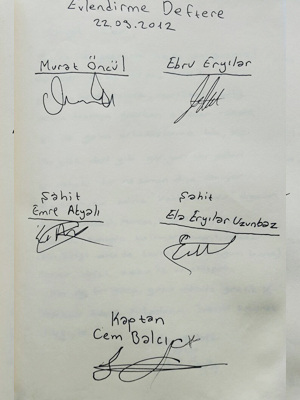 Evlendirme Deftere
22.09.2012
Murat Öncül
Ebru Eryılar
Şahit
Emre Atyalı
Şahit
Ela Eryılar Uzunbaz
Kaptan
Cem Balcı